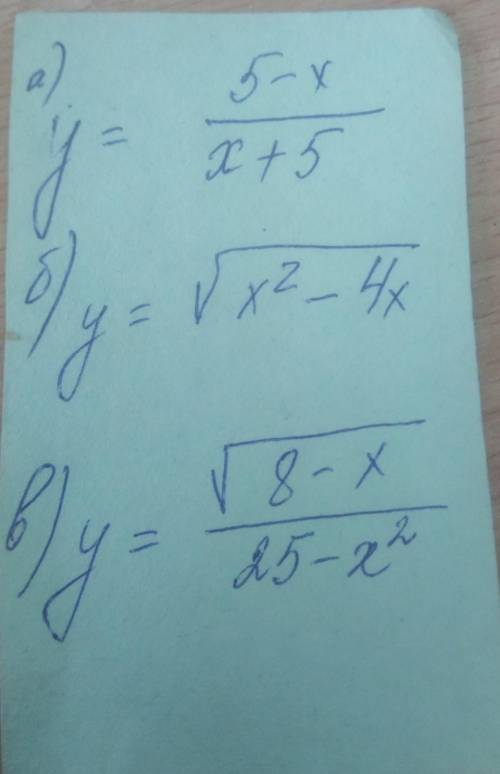 а) y = (5 - x)/(x + 5)
б) y = √(x² - 4x)
в) y = √(8 - x)/(25 - x²)